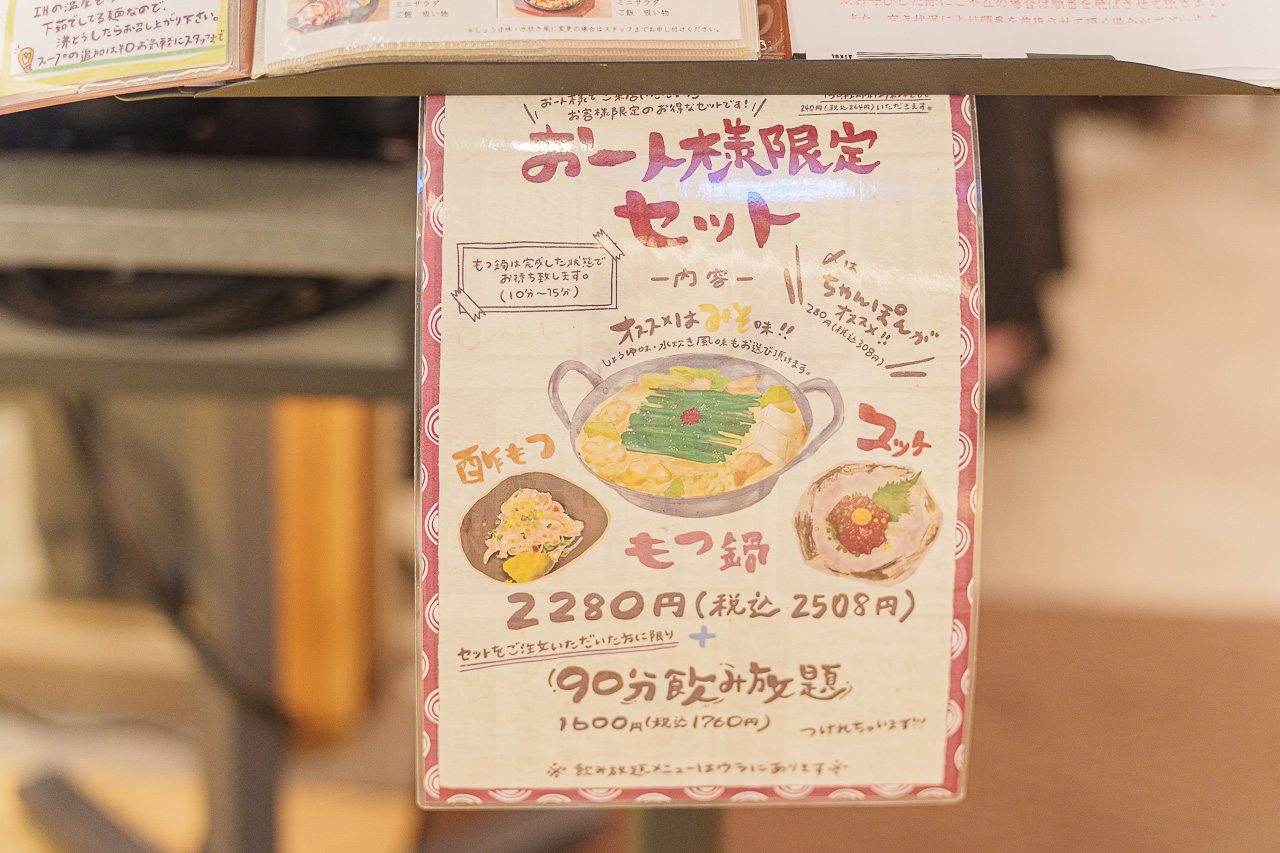 IHの温度を
下茹でしてる麺なので、
沸とうしたらお召し上がり下さい。
スープの追加は¥0 お気軽にスタッフまで
ミニサラダ
ご飯 吸い物
ミニサラダ
ご飯 吸い物
※しょうゆ味・水炊き風に変更の場合はスタッフまでお申し付けください。
また、空き状況により順番を前後させて頂く場合がございます。
ASKUL
お客様限定のお得なセットです!
240円(税込264円)いただきます。
お一人様限定
セット
もつ鍋は完成した状態で
お持ち致します。
(10分〜15分)
ー内容ー
〆は
ちゃんぽんが
オススメ!!
280円(税込308円)
オススメはみそ味!!
しょうゆ味・水炊き風味もお選び頂けます。
酢もつ
ユッケ
もつ鍋
2280円(税込 2508円)
セットをご注文いただいた方に限り
+
90分飲み放題
1600円(税込1760円)
つけれちゃいます!!!
※飲み放題メニューはウラにあります※